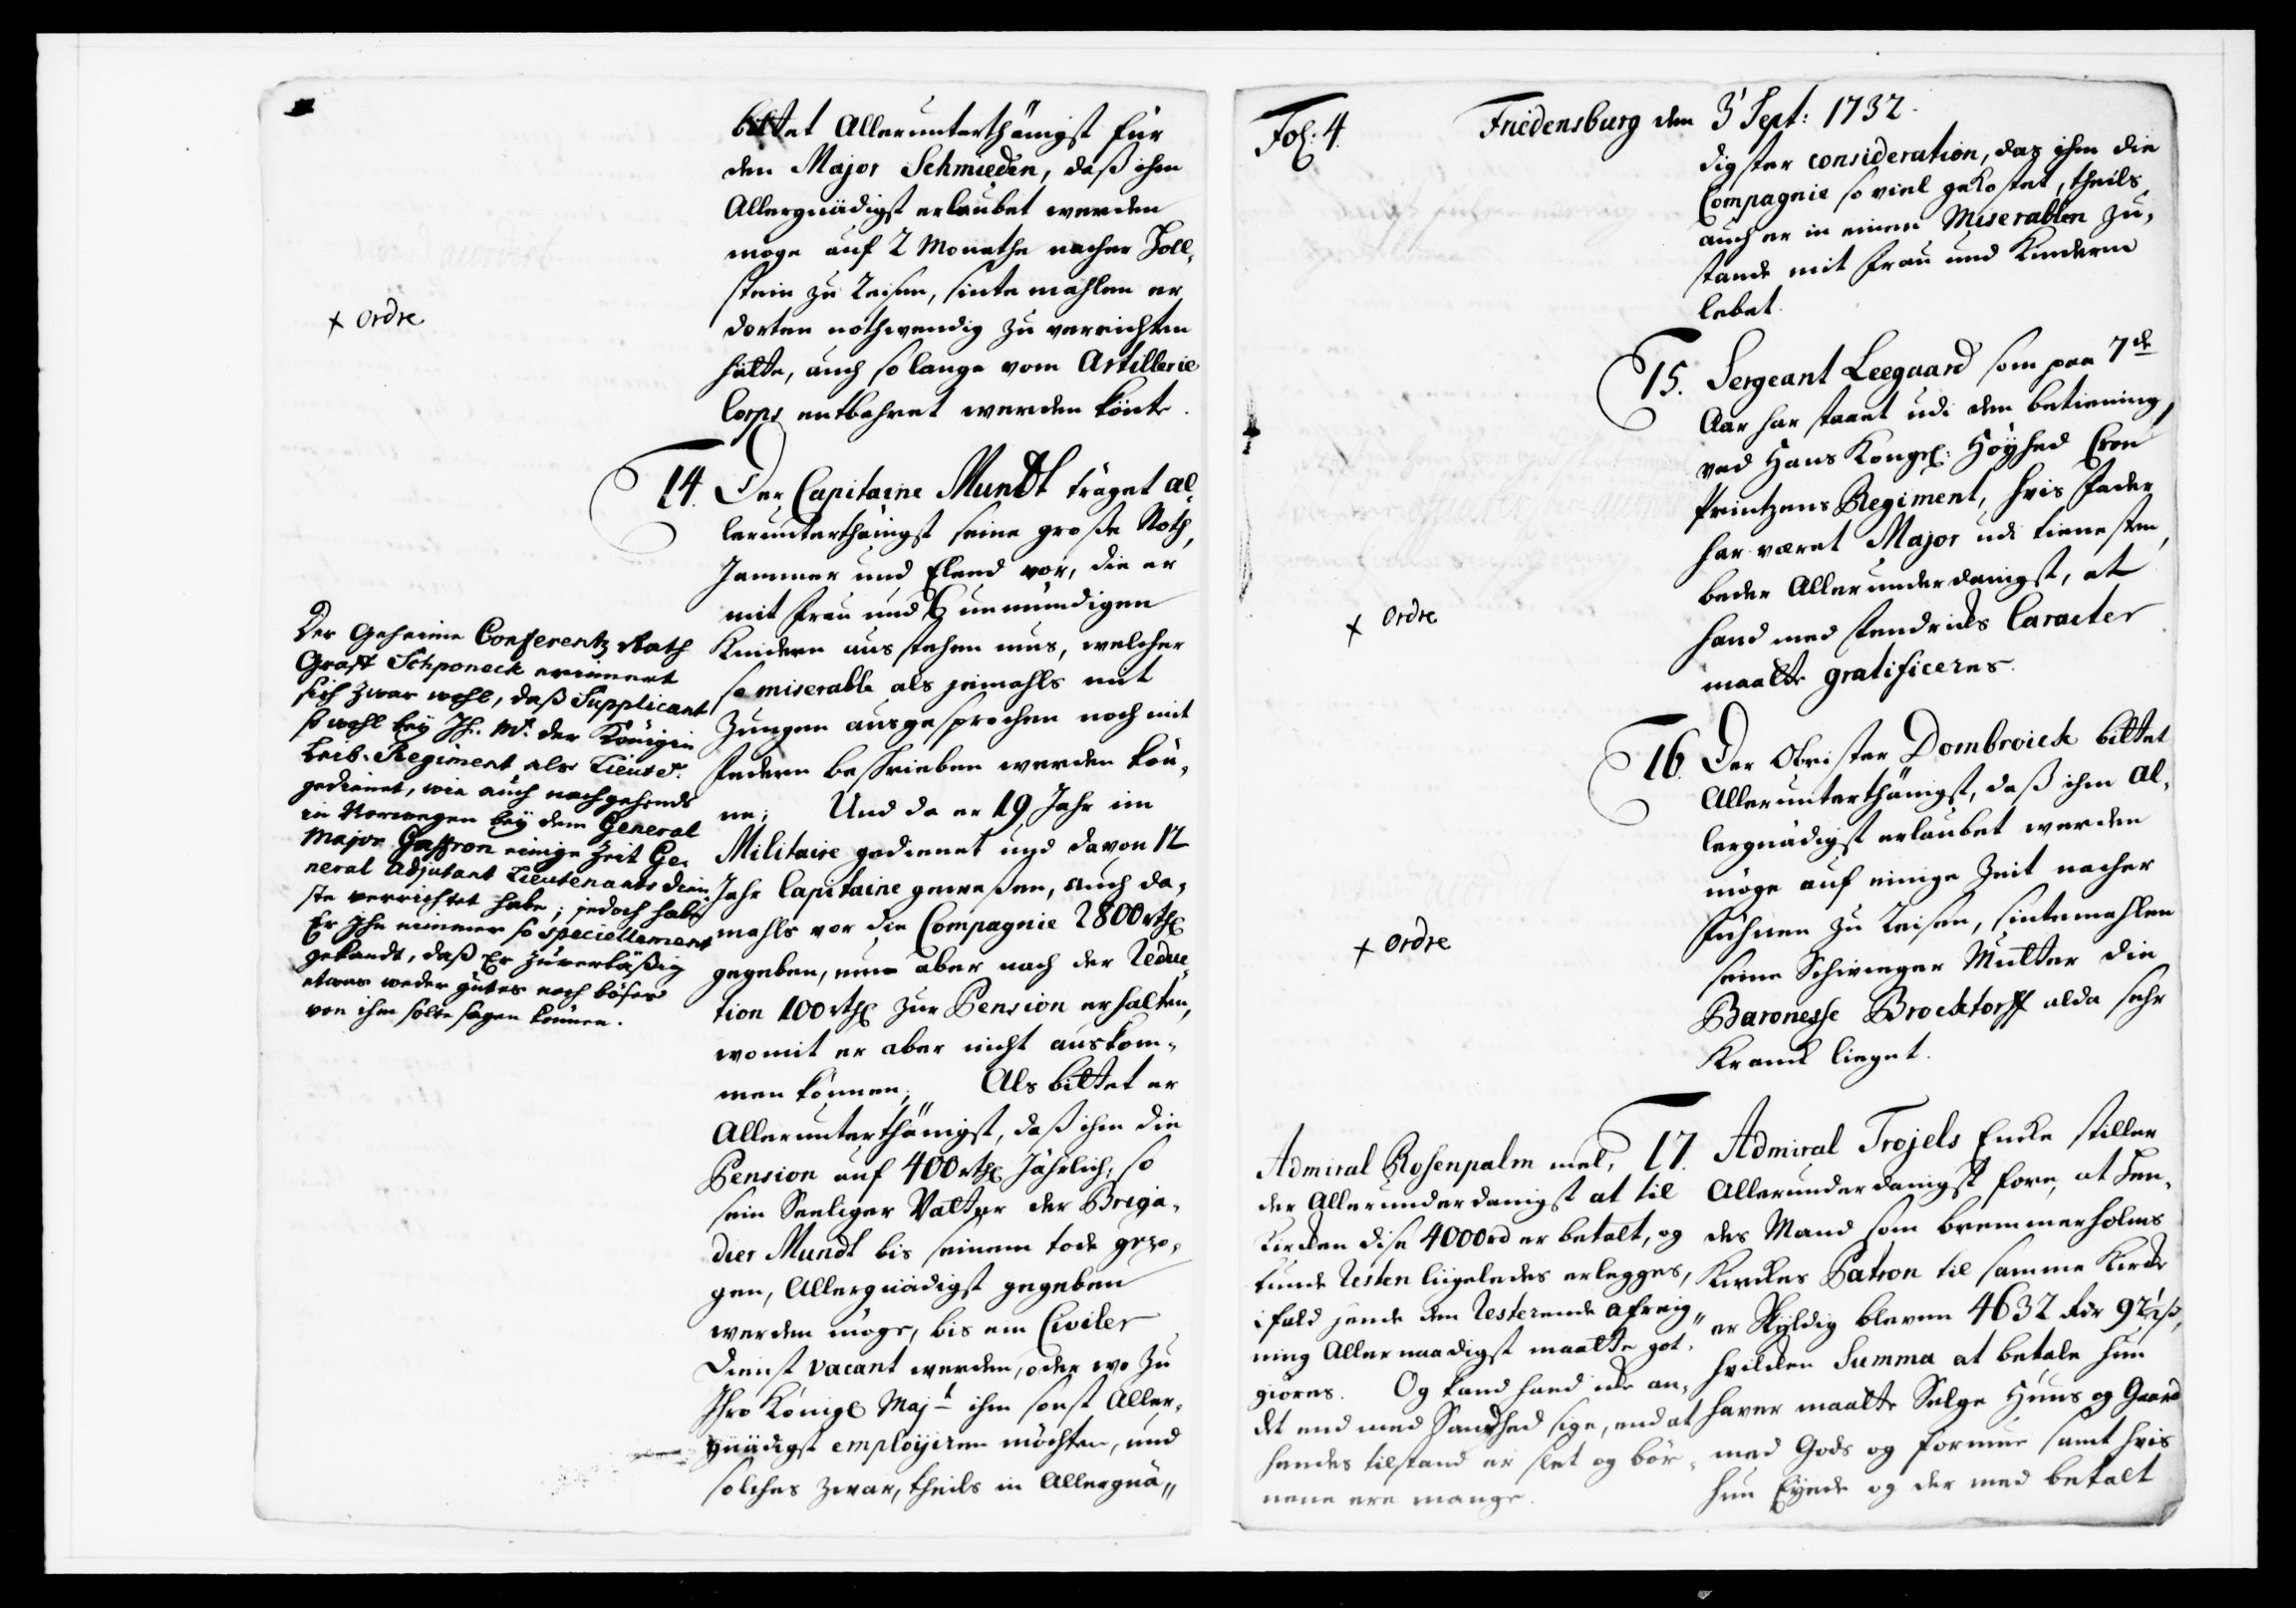 bittet Allerunterthänigst für
den Major Schmieden, daß ihm
Allergnädigst erlaubet werden
möge auf 2 Monathe nacher Holl-
stein zu Reisen, sintemahlen er
dorten nothwendig zu verrichten
hätte, auch so lange vom Artillerie
Corps entbehret werden könte.
+ ordre
14. Der Capitaine Mundt träget al-
lerunterthänigst seine große Noth,
Jammer und Elend vor, die er
mit Frau und unmündigen
Kindern ausstehen mus, welcher
so miserable als jemahls mit
Zungen ausgesprochen noch mit
Federn beschrieben werden kön-
ne; Und da er 19 Jahr im
Militaire gedienet und davon 12
Jahr Capitaine geweßen, auch da-
mahls vor die Compagnie 2800 rthl
gegeben, nun aber nach der Reduc-
tion 100 rthl zur Pension erhalten,
womit er aber nicht auskom-
men können; Als bittet er
Allerunterthänigst, daß ihm die
Pension auf 400 rthl Jährlich, so
sein Seeliger Vatter der Briga-
dier Mundt bis seinem tode gezo-
gen, Allergnädigst gegeben
werden möge, bis ein Civiler
Dienst vacant werden, oder wo zu
Ihro Königl Mayt ihm sonst Aller-
gnädigst employiren möchten, und
solches zwar, theils in Allergnä-
Der Geheime Conferentz Rath
Graff Schponeck erinnert
sich zwar wohl, daß Supplicant
so wohl bey Ih. Mt. der Königin
Leib-Regiment als Lieut.
gedienet, wie auch nachgehends
in Norwegen bey dem General
Major Gaffron einige Zeit Ge-
neral Adjutant Lieutenants Dien-
ste verrichtet habe; jedoch habe
Er Ihn nimmer so speciellement
gekandt, daß Er zuverläßig
etwas weder gutes noch böses
von ihm solte sagen können.
Fol. 4. Friedensburg den 3' Sept: 1732.
digster consideration, das ihm die
Compagnie so viel gekostet, theils
auch er in einem Miserablen Zu-
stande mit Frau und Kindern
lebet.
15. Sergeant Leegaard som paa 7de
Aar har staaet udi den betiening
ved Hans Kongl: Höyhed Cron
Printzens Regiment, hvis Fader
har været Major udi tienesten,
beder Allerunderdanigst, at
hand med Fendricks Caracter
maatte gratificeres.
+ ordre
16. Der Obrister Dombroick bittet
Allerunterthänigst, daß ihm al-
lergnädigst erlaubet werden
möge auf einige Zeit nacher
Fühnen zu Reisen, sintemahlen
seine Schwieger Mutter die
Baronesse Brocktorff alda sehr
Kranck lieget.
+ ordre
17. Admiral Trojels Encke stiller
Allerunderdanigst fore, at hen-
des Mand som bremmerholms
Kirckes Patron til samme Kircke
er skyldig bleven 4632 Rdr 92½ ß,
hvilcken Summa at betale hun
haver maatte Selge Huus og Gaard
med Gods og formue samt hvis
hun Eyede og der med betalt
Admiral Rosenpalm mel-
der Allerunderdanigst at til
Kircken dise 4000 rd er betalt, og
kunde Resten liigeledes erlegges,
ifald hende den Resterende afreig-
ning Allernaadigst maatte got-
giøres. Og kand hand icke an-
det end med Sandhed sige, end at
hendes tilstand er slet og bør-
nene ere mange.